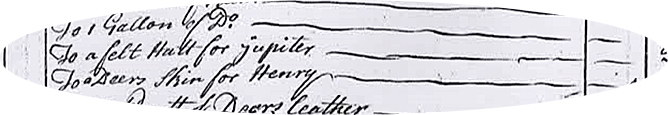 To 1 Gallon of Do.
To a felt Hatt for Jupiter
To a Deers Skin for Henry
of Deers leather